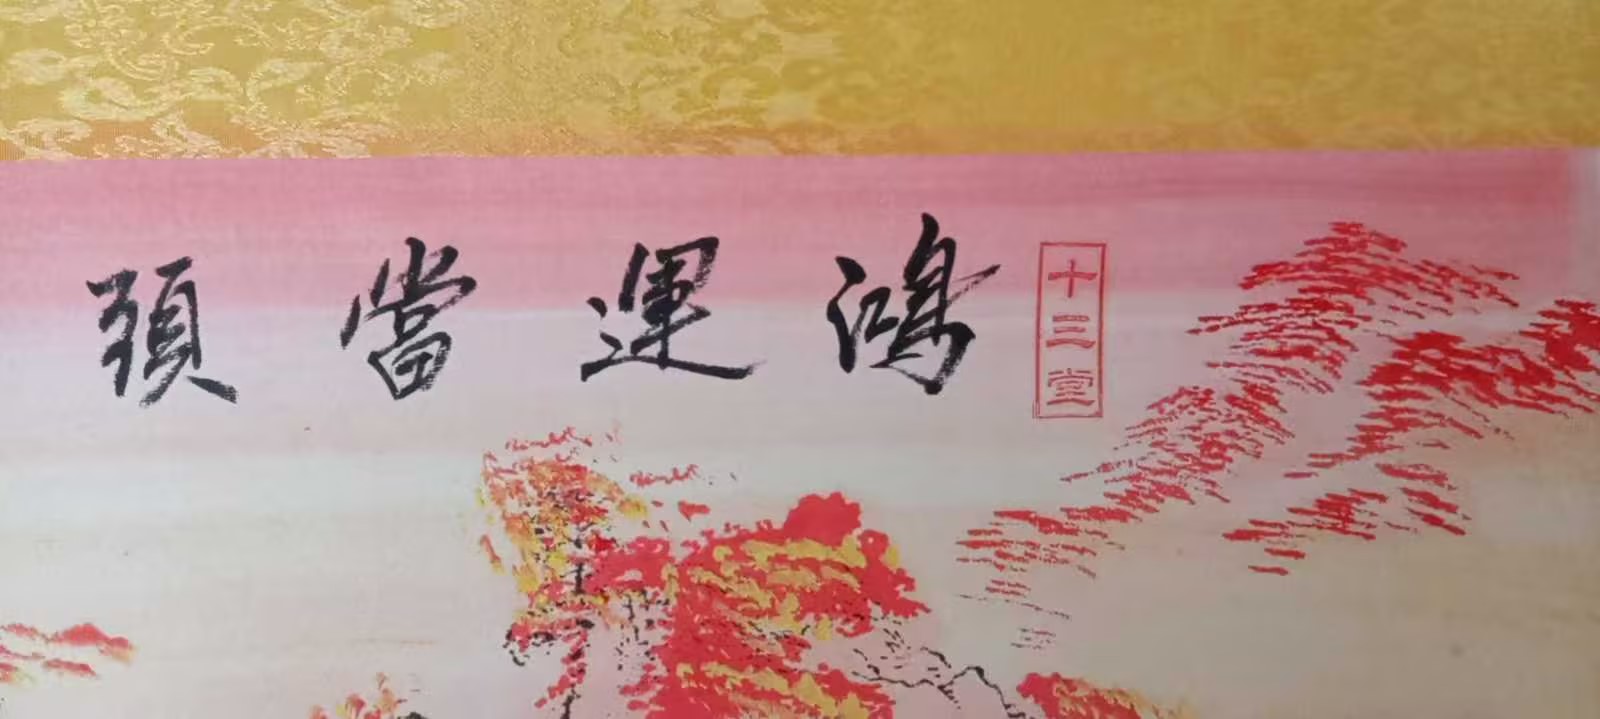 鴻運當頭
十三堂